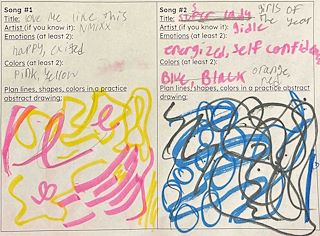 Song #1
Title: love me like this
Artist (if you know it): NMIXX
Emotions (at least 2):
happy, exited
Colors (at least 2):
Pink, yellow
Plan lines, shapes, colors in a practice
abstract drawing:
Song #2
Title: Super lady girls of
the year
Artist (if you know it): gidle
Emotions (at least 2):
energized, self confident
Colors (at least 2):
Blue, Black orange,
red
Plan lines, shapes, colors in a practice
abstract drawing: